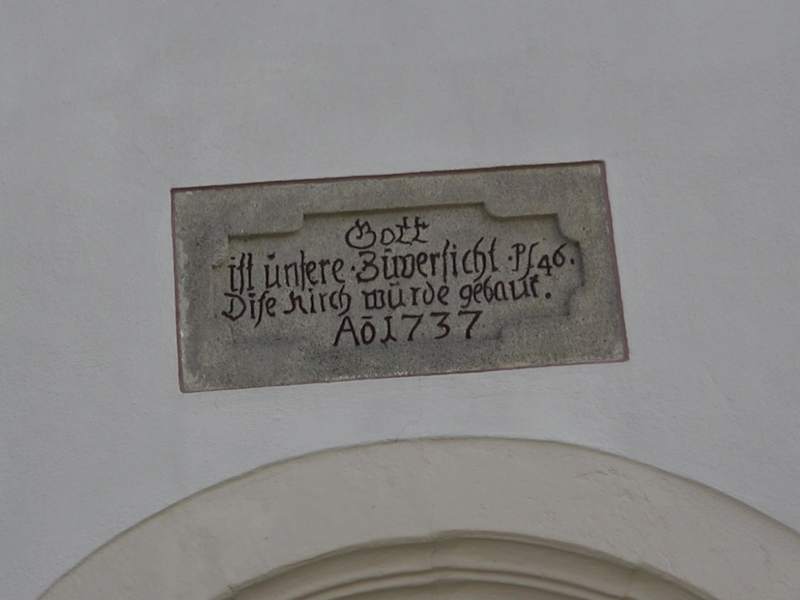 Gott
ist ūnsere Zūwersicht Ps 46.
Dise Kirch wūrde gebaut.
Aō 1737